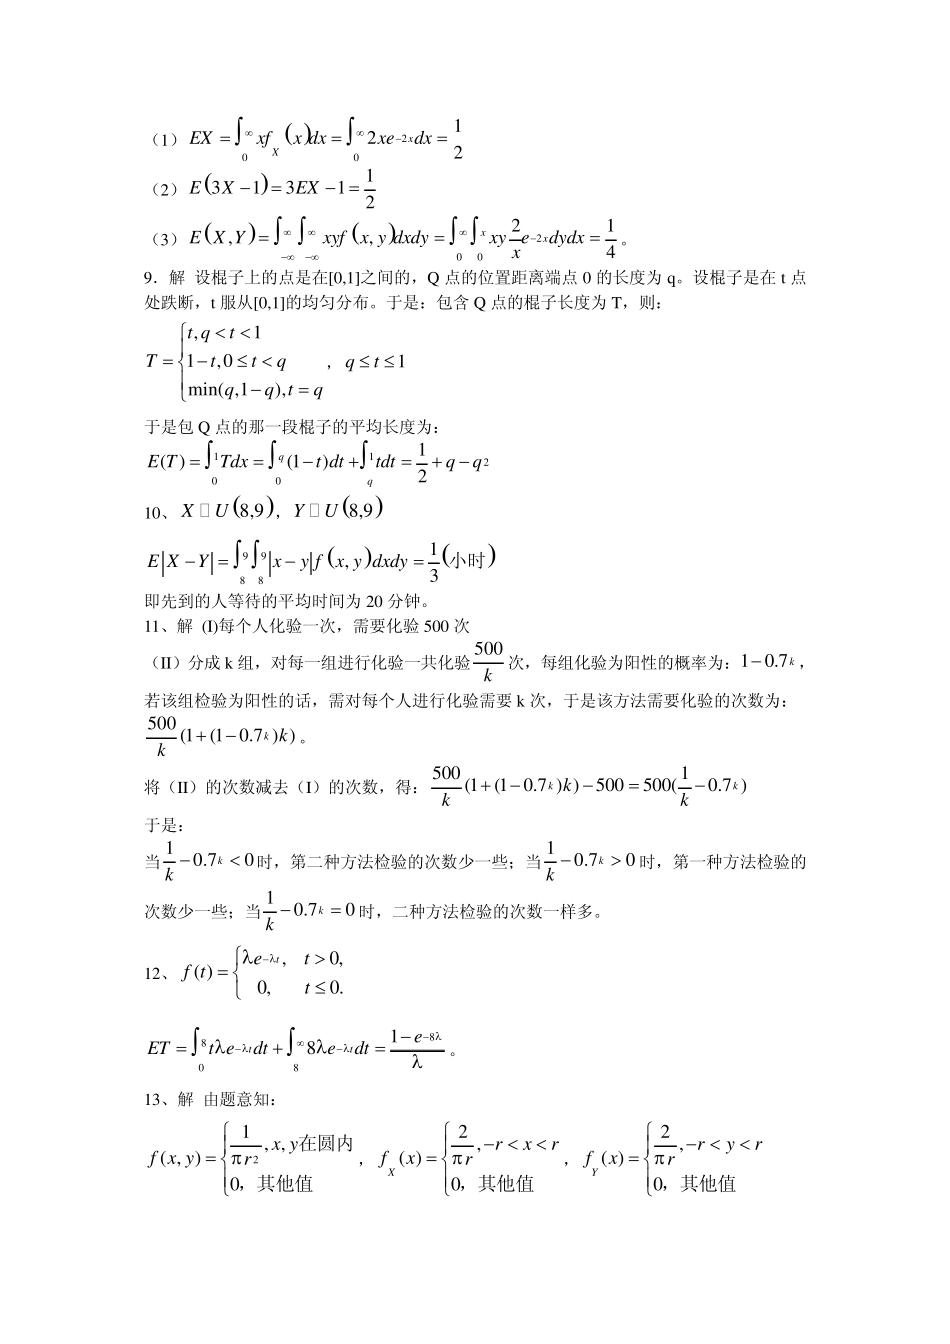 （1）EX = ∫_0^∞ x f_X (x)dx = ∫_0^∞ 2xe^{−2x}dx = 1/2
（2）E(3X −1) = 3EX −1 = 1/2
（3）E(X,Y) = ∫_{−∞}^∞ ∫_{−∞}^∞ xyf (x, y)dxdy = ∫_0^∞ ∫_0^x xy 2/x e^{−2x}dydx = 1/4。
9．解 设棍子上的点是在[0,1]之间的，Q 点的位置距离端点 0 的长度为 q。设棍子是在 t 点
处跌断，t 服从[0,1]的均匀分布。于是：包含 Q 点的棍子长度为 T，则：
T = { t, q < t <1
1−t,0 ≤ t < q ，q ≤ t ≤1
min(q,1−q),t = q
于是包 Q 点的那一段棍子的平均长度为：
E(T) = ∫_0^1 Tdx = ∫_0^q (1−t)dt + ∫_q^1 tdt = 1/2 + q − q^2
10、X □ U (8,9)，Y □ U (8,9)
E|X −Y| = ∫_8^9 ∫_8^9 |x − y| f (x, y)dxdy = 1/3 (小时)
即先到的人等待的平均时间为 20 分钟。
11、解 (I)每个人化验一次，需要化验 500 次
（II）分成 k 组，对每一组进行化验一共化验 500/k 次，每组化验为阳性的概率为：1−0.7^k，
若该组检验为阳性的话，需对每个人进行化验需要 k 次，于是该方法需要化验的次数为：
500/k (1+(1−0.7^k)k)。
将（II）的次数减去（I）的次数，得：500/k (1+(1−0.7^k)k)−500 = 500(1/k −0.7^k)
于是：
当 1/k −0.7^k < 0 时，第二种方法检验的次数少一些；当 1/k −0.7^k > 0 时，第一种方法检验的
次数少一些；当 1/k −0.7^k = 0 时，二种方法检验的次数一样多。
12、f (t) = { λe^{−λt}, t > 0,
0, t ≤ 0.
ET = ∫_0^8 tλe^{−λt}dt + ∫_8^∞ 8λe^{−λt}dt = (1−e^{−8λ})/λ。
13、解 由题意知：
f (x, y) = { 1/(πr^2), x, y在圆内
0，其他值 ，f_X (x) = { 2/(πr), −r < x < r
0，其他值 ，f_Y (x) = { 2/(πr), −r < y < r
0，其他值